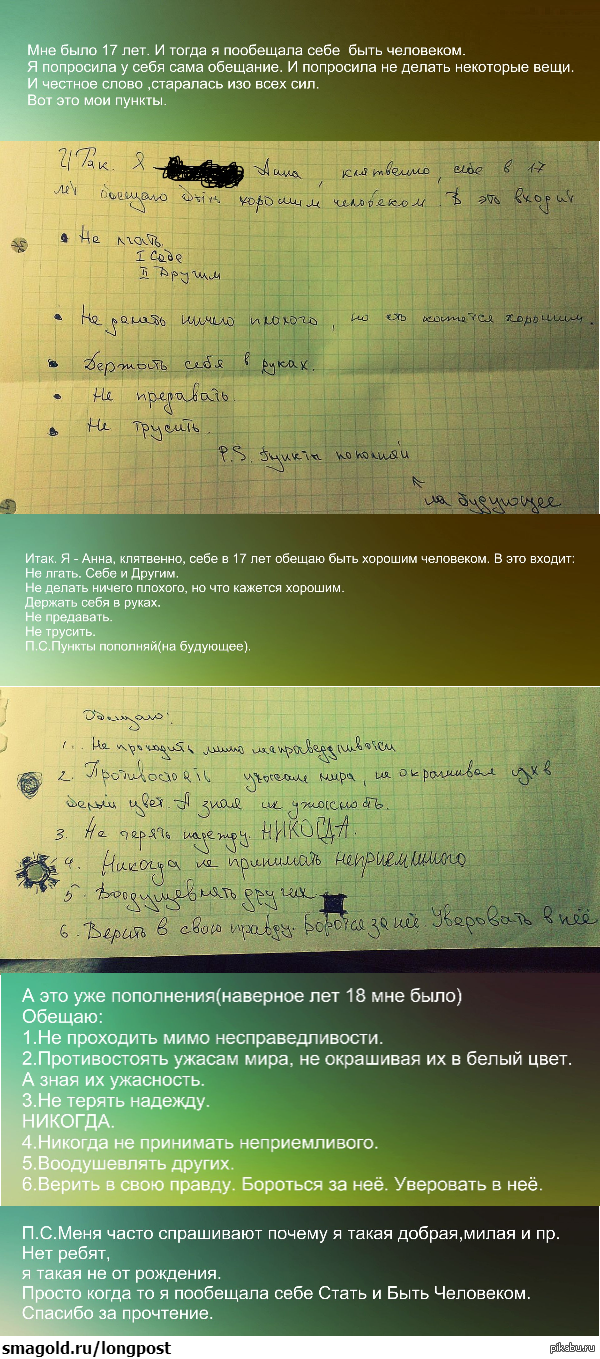 Мне было 17 лет. И тогда я пообещала себе быть человеком.
Я попросила у себя сама обещание. И попросила не делать некоторые вещи.
И честное слово ,старалась изо всех сил.
Вот это мои пункты.
ИТак. Я Анна, клятвенно, себе в 17
лет обещаю быть хорошим человеком. В это входит
• Не лгать.
I Себе
II Другим
• Не делать ничего плохого, но что кажется хорошим.
• Держать себя в руках.
• Не предавать.
• Не трусить.
P.S. Пункты пополняй
на будующее
Итак. Я - Анна, клятвенно, себе в 17 лет обещаю быть хорошим человеком. В это входит:
Не лгать. Себе и Другим.
Не делать ничего плохого, но что кажется хорошим.
Держать себя в руках.
Не предавать.
Не трусить.
П.С.Пункты пополняй(на будующее).
Обещаю:
1. Не проходить мимо несправедливости
2. Противостоять ужасам мира, не окрашивая их в
белый цвет. А зная их ужасность.
3. Не терять надежду. НИКОГДА.
4. Никогда не принимать неприемлимого
5. Воодушевлять других.
6. Верить в свою правду. Бороться за неё Уверовать в неё
А это уже пополнения(наверное лет 18 мне было)
Обещаю:
1.Не проходить мимо несправедливости.
2.Противостоять ужасам мира, не окрашивая их в белый цвет.
А зная их ужасность.
3.Не терять надежду.
НИКОГДА.
4.Никогда не принимать неприемливого.
5.Воодушевлять других.
6.Верить в свою правду. Бороться за неё. Уверовать в неё.
П.С.Меня часто спрашивают почему я такая добрая,милая и пр.
Нет ребят,
я такая не от рождения.
Просто когда то я пообещала себе Стать и Быть Человеком.
Спасибо за прочтение.
smagold.ru/longpost
pikabu.ru